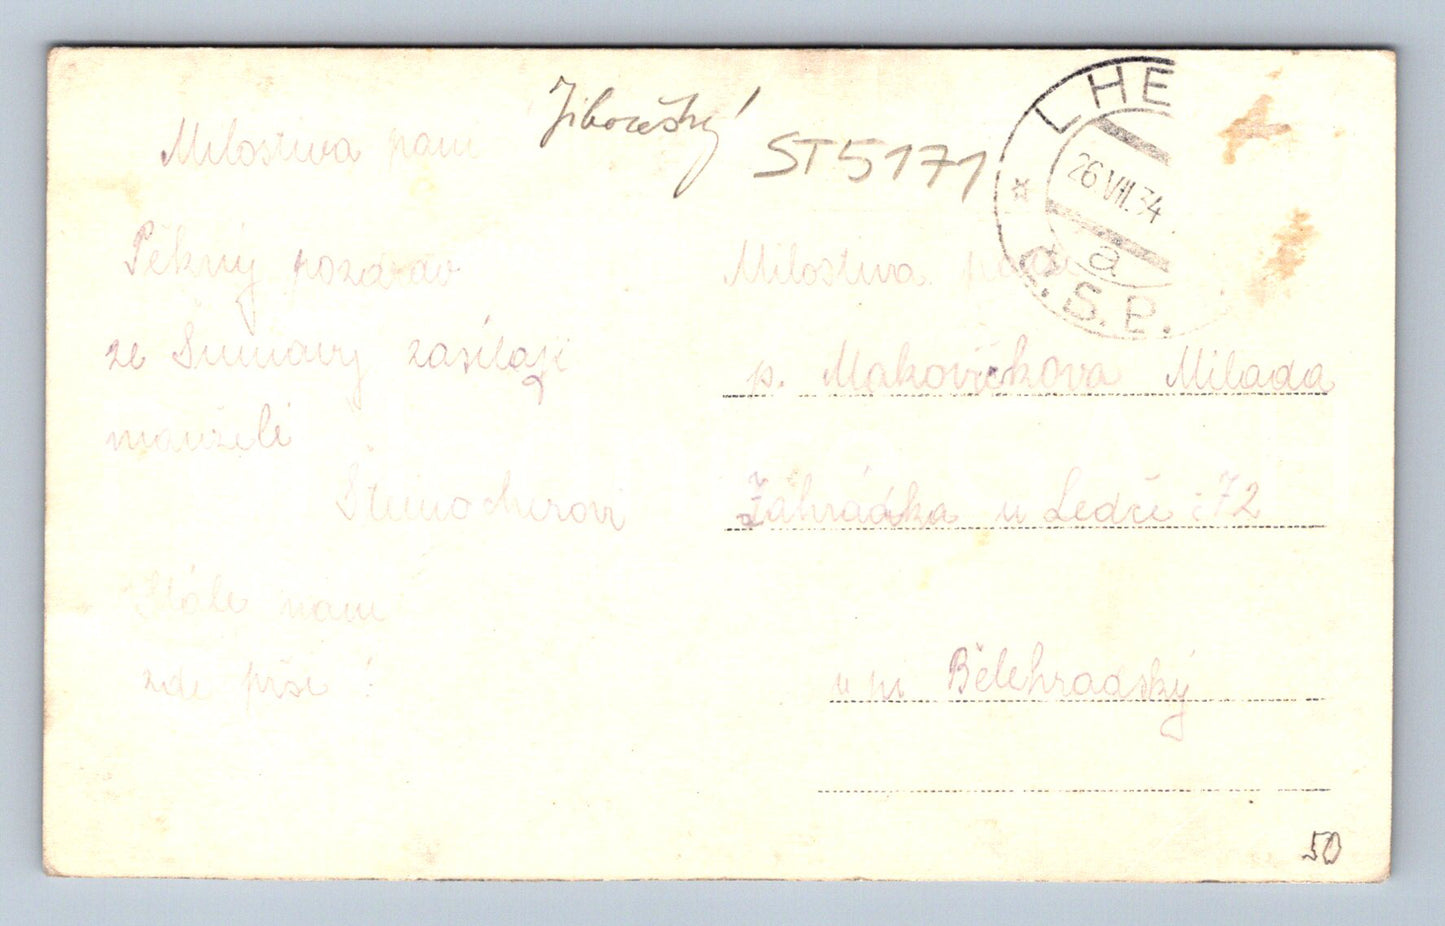 Jihočeský
ST5171
LHE
26.VIII.34
a
Č.S.P.
Milostiva pani
Pěkný pozdrav
ze Šumavy zasílají
manželi
Šteinocherovi
Stále nám
zde prší !
Milostiva paní
p. Makovičkova Milada
Zahrádka u Ledče : 72
u p. Bělehradský
50